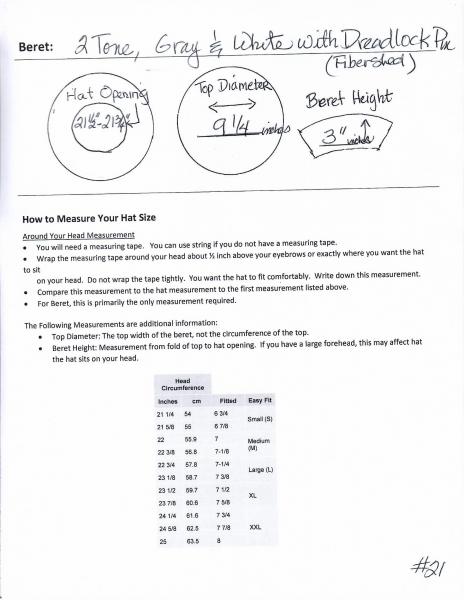 Beret: 2 Tone, Gray & White with Dreadlock Pin
(Fibershed)
Hat Opening
21 1/2" - 21 3/4"
Top Diameter
9 1/4 inches
Beret Height
3" inches
How to Measure Your Hat Size
Around Your Head Measurement
• You will need a measuring tape. You can use string if you do not have a measuring tape.
• Wrap the measuring tape around your head about ½ inch above your eyebrows or exactly where you want the hat
to sit
on your head. Do not wrap the tape tightly. You want the hat to fit comfortably. Write down this measurement.
• Compare this measurement to the hat measurement to the first measurement listed above.
• For Beret, this is primarily the only measurement required.
The Following Measurements are additional information:
• Top Diameter: The top width of the beret, not the circumference of the top.
• Beret Height: Measurement from fold of top to hat opening. If you have a large forehead, this may affect hat
the hat sits on your head.
Head
Circumference
Inches cm Fitted Easy Fit
21 1/4 54 6 3/4
Small (S)
21 5/8 55 6 7/8
22 55.9 7
Medium
(M)
22 3/8 56.8 7-1/8
22 3/4 57.8 7-1/4
Large (L)
23 1/8 58.7 7 3/8
23 1/2 59.7 7 1/2
XL
23 7/8 60.6 7 5/8
24 1/4 61.6 7 3/4
24 5/8 62.5 7 7/8 XXL
25 63.5 8
#21